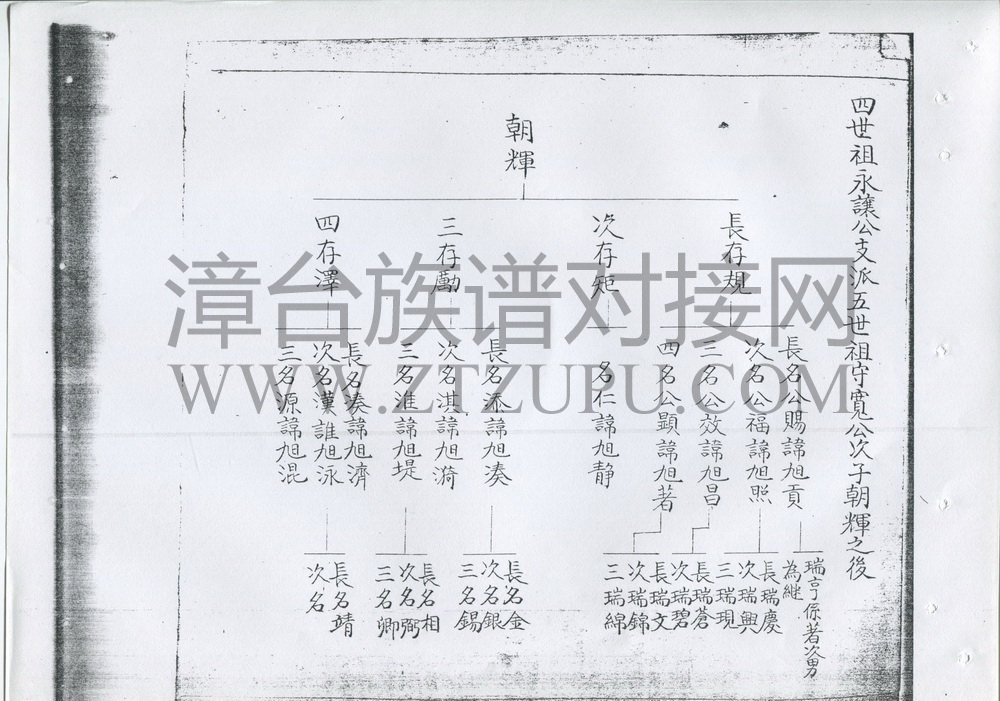 四世祖永讓公支派五世祖守寬公次子朝輝之後
朝輝
長存規
次存矩
三存勵
四存澤
長名公賜諱旭貢
次名公福諱旭照
三名公效諱旭昌
四名公顕諱旭著
名仁諱旭静
長名添諱旭湊
次名淇諱旭漪
三名淮諱旭堤
長名湊諱旭濟
次名漢誰旭泳
三名源諱旭混
瑞亨係著次男
為継
長瑞慶
次瑞興
三瑞現
長瑞蒼
次瑞碧
長瑞文
次瑞錦
三瑞綿
長名金
次名銀
三名錫
長名相
次名弼
三名卿
長名靖
次名
漳台族谱对接网
WWW.ZTZUPU.COM